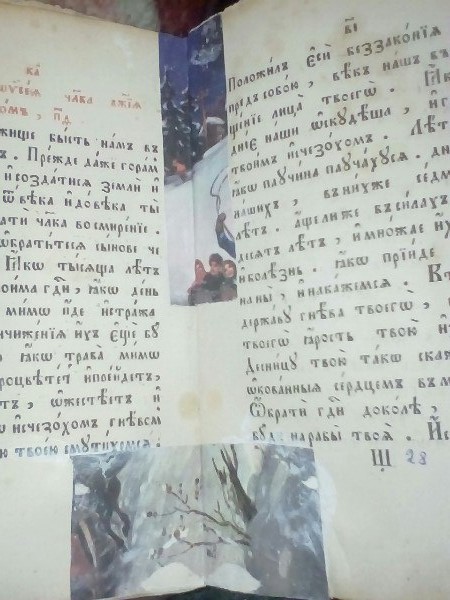 к҃а
чл҃ка бж҃їѧ
ѡмъ , п҃д
жище бысть намъ въ
ъ . Пре́жде даже горам
и҆ создатисѧ земли и҆
ѿ вѣка и҆ довѣка ты
ати чл҃ка во смиренїе .
ѡбратьтеся сынове че
Ꙗкѡ тысѧща лѣтъ
оима гд҃и , ꙗкѡ день
мимѡ иде и҆ стража
ничиженїѧ и҆хъ Еще бу
ꙗкѡ трава мимѡ
роцвѣтетъ и҆ прейдетъ ,
тъ , ѡжестѣетъ и҆
ѡ и҆счезохомъ гнѣвом
ю твоею смутихомся .
в҃і
Положилъ Є҆си беззаконїѧ
предъ собою , вѣкъ нашъ въ
щенїе лица твоегѡ . Ꙗкѡ
дниє наши ѡскудѣша , и҆ г
твоимъ и҆счезохом . Лѣт
ꙗкѡ паучина паучахуся . дн
нашихъ , въ нихже седм
лѣтъ . аще ли же въ силахъ
десять лѣтъ , и҆ множае и҆х
и҆ болѣзнь . ꙗкѡ прїиде
на ны , и҆ накажемся . Кт
державу гнѣва твоегѡ ,
твоегѡ ꙗрость твою и҆
Десницу твою такѡ ска
ѡкованныя сердцемъ въ м
Ѿврати гд҃и доколѣ ,
буди на рабы твоѧ . И҆с
Щ 28